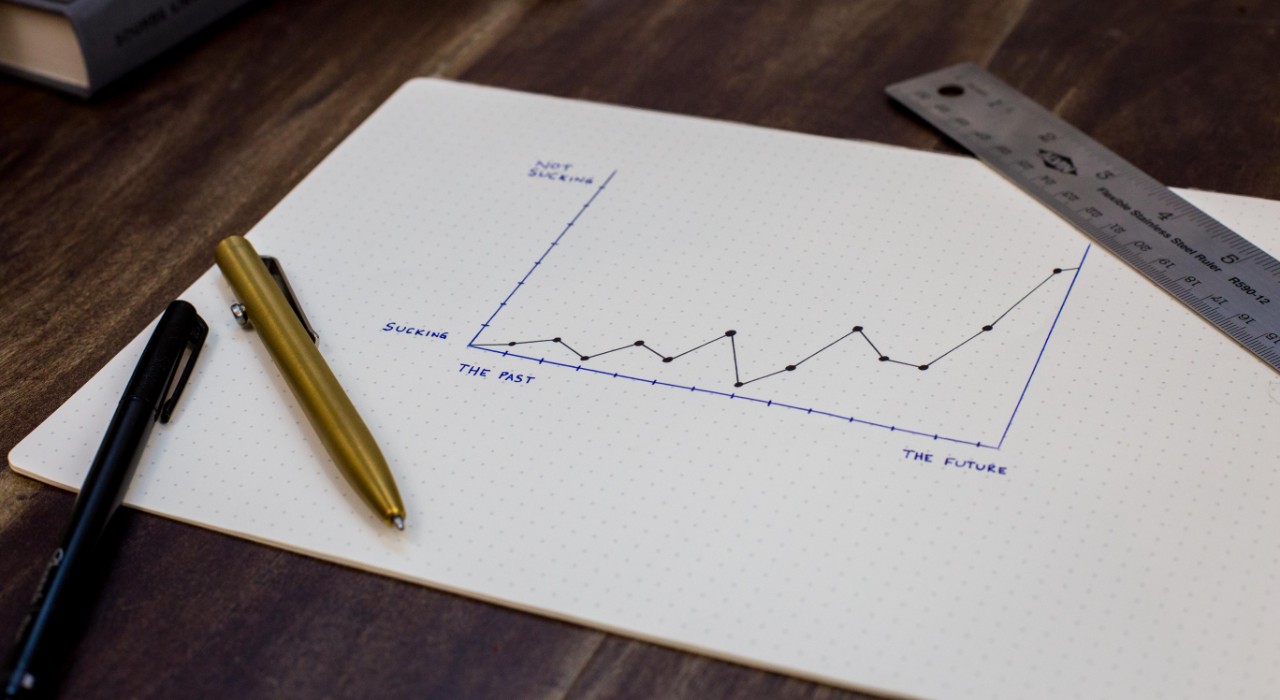 NOT
SUCKING
SUCKING
THE PAST
THE FUTURE
1
2
3
4
5
Flexible Stainless Steel Ruler R590-12
21
20
19
18
17
16
15